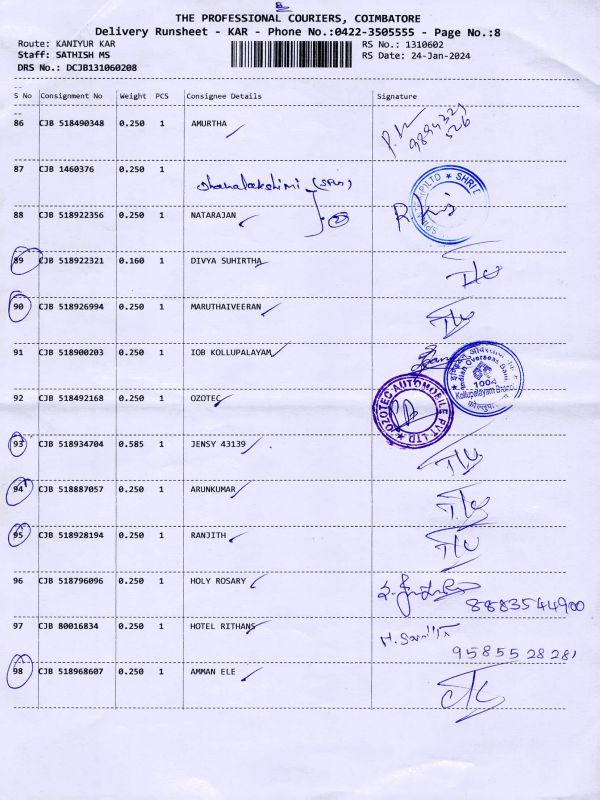 8
THE PROFESSIONAL COURIERS, COIMBATORE
Delivery Runsheet - KAR - Phone No.:0422-3505555 - Page No.:8
Route: KANIYUR KAR RS No.: 1310602
Staff: SATHISH MS RS Date: 24-Jan-2024
DRS No.: DCJB131060208
S No Consignment No Weight PCS Consignee Details Signature
86 CJB 518490348 0.250 1 AMURTHA
9894321
526
87 CJB 1460376 0.250 1
Dhanalakshimi (SPLS)
SHRI
88 CJB 518922356 0.250 1 NATARAJAN
89 CJB 518922321 0.160 1 DIVYA SUHIRTHA
90 CJB 518926994 0.250 1 MARUTHAIVEERAN
91 CJB 518900203 0.250 1 IOB KOLLUPALAYAM
Indian Overseas Bank
1004
Kollupalayam Branch
92 CJB 518492168 0.250 1 OZOTEC
OZOTEC AUTOMOBILE PVT LTD
93 CJB 518934704 0.585 1 JENSY 43139
94 CJB 518887057 0.250 1 ARUNKUMAR
95 CJB 518928194 0.250 1 RANJITH
96 CJB 518796096 0.250 1 HOLY ROSARY
8883544900
97 CJB 80016834 0.250 1 HOTEL RITHANS
95855 28281
98 CJB 518968607 0.250 1 AMMAN ELE